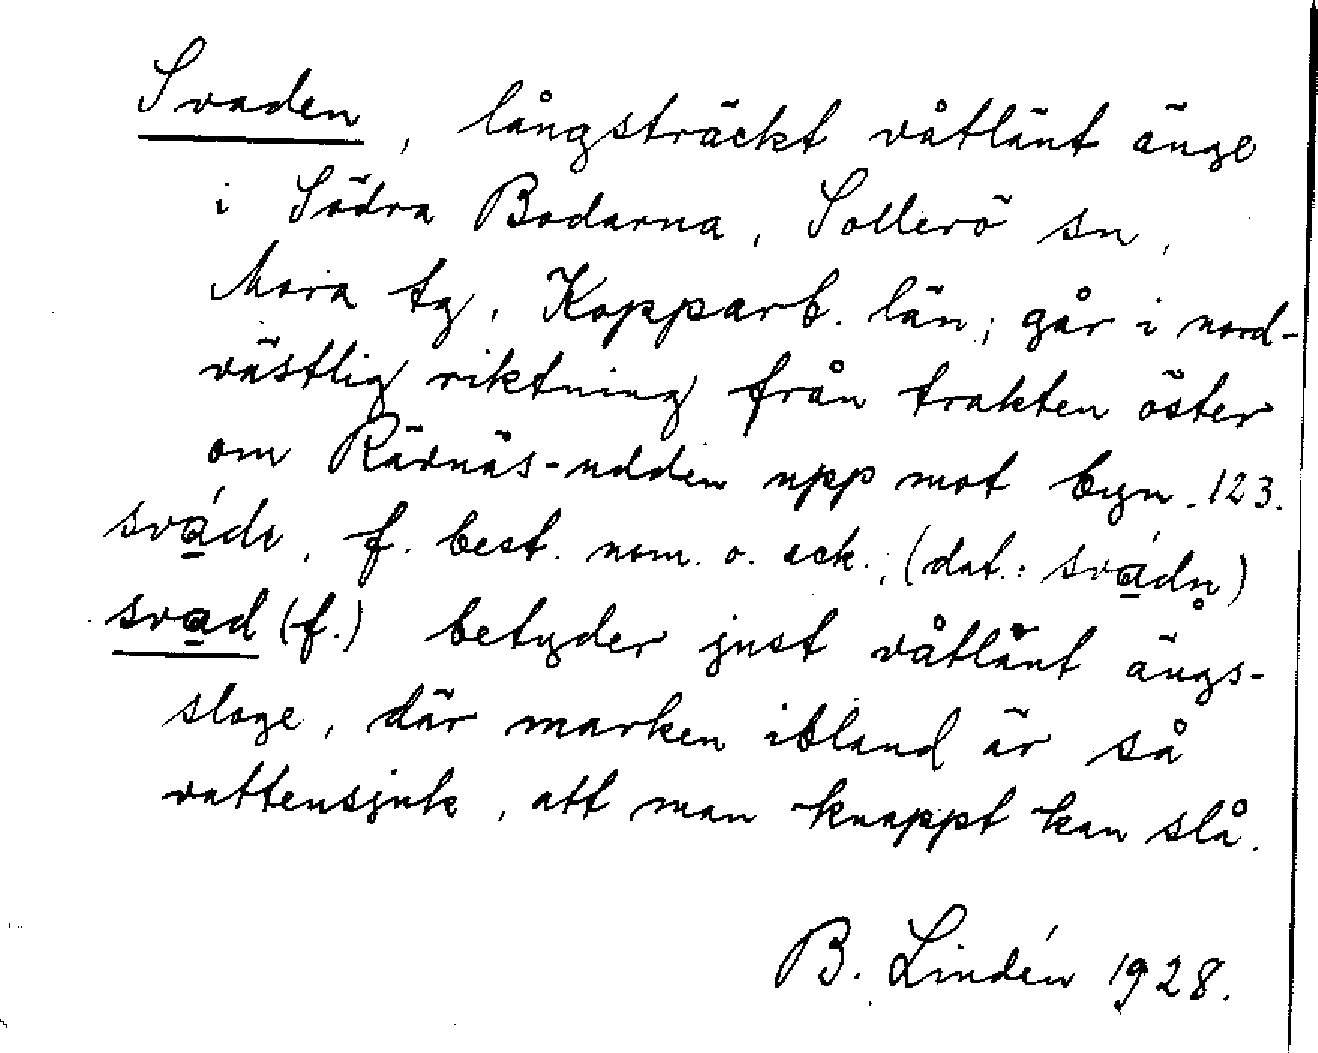 Svaden, långsträckt våtlänt änge
i Södra Bodarna, Sollerö sn,
Mora tg, Kopparb. län; går i nord-
västlig riktning från trakten öster
om Rävnäs-udden upp mot byn. 123.
svá̲dι, f. best. nom. o. ack.; (dat.: svá̲dn̥)
sva̲d (f.) betyder just våtlänt ängs-
sloge, där marken ibland är så
vattensjuk, att man knappt kan slå.
B. Lindén 1928.